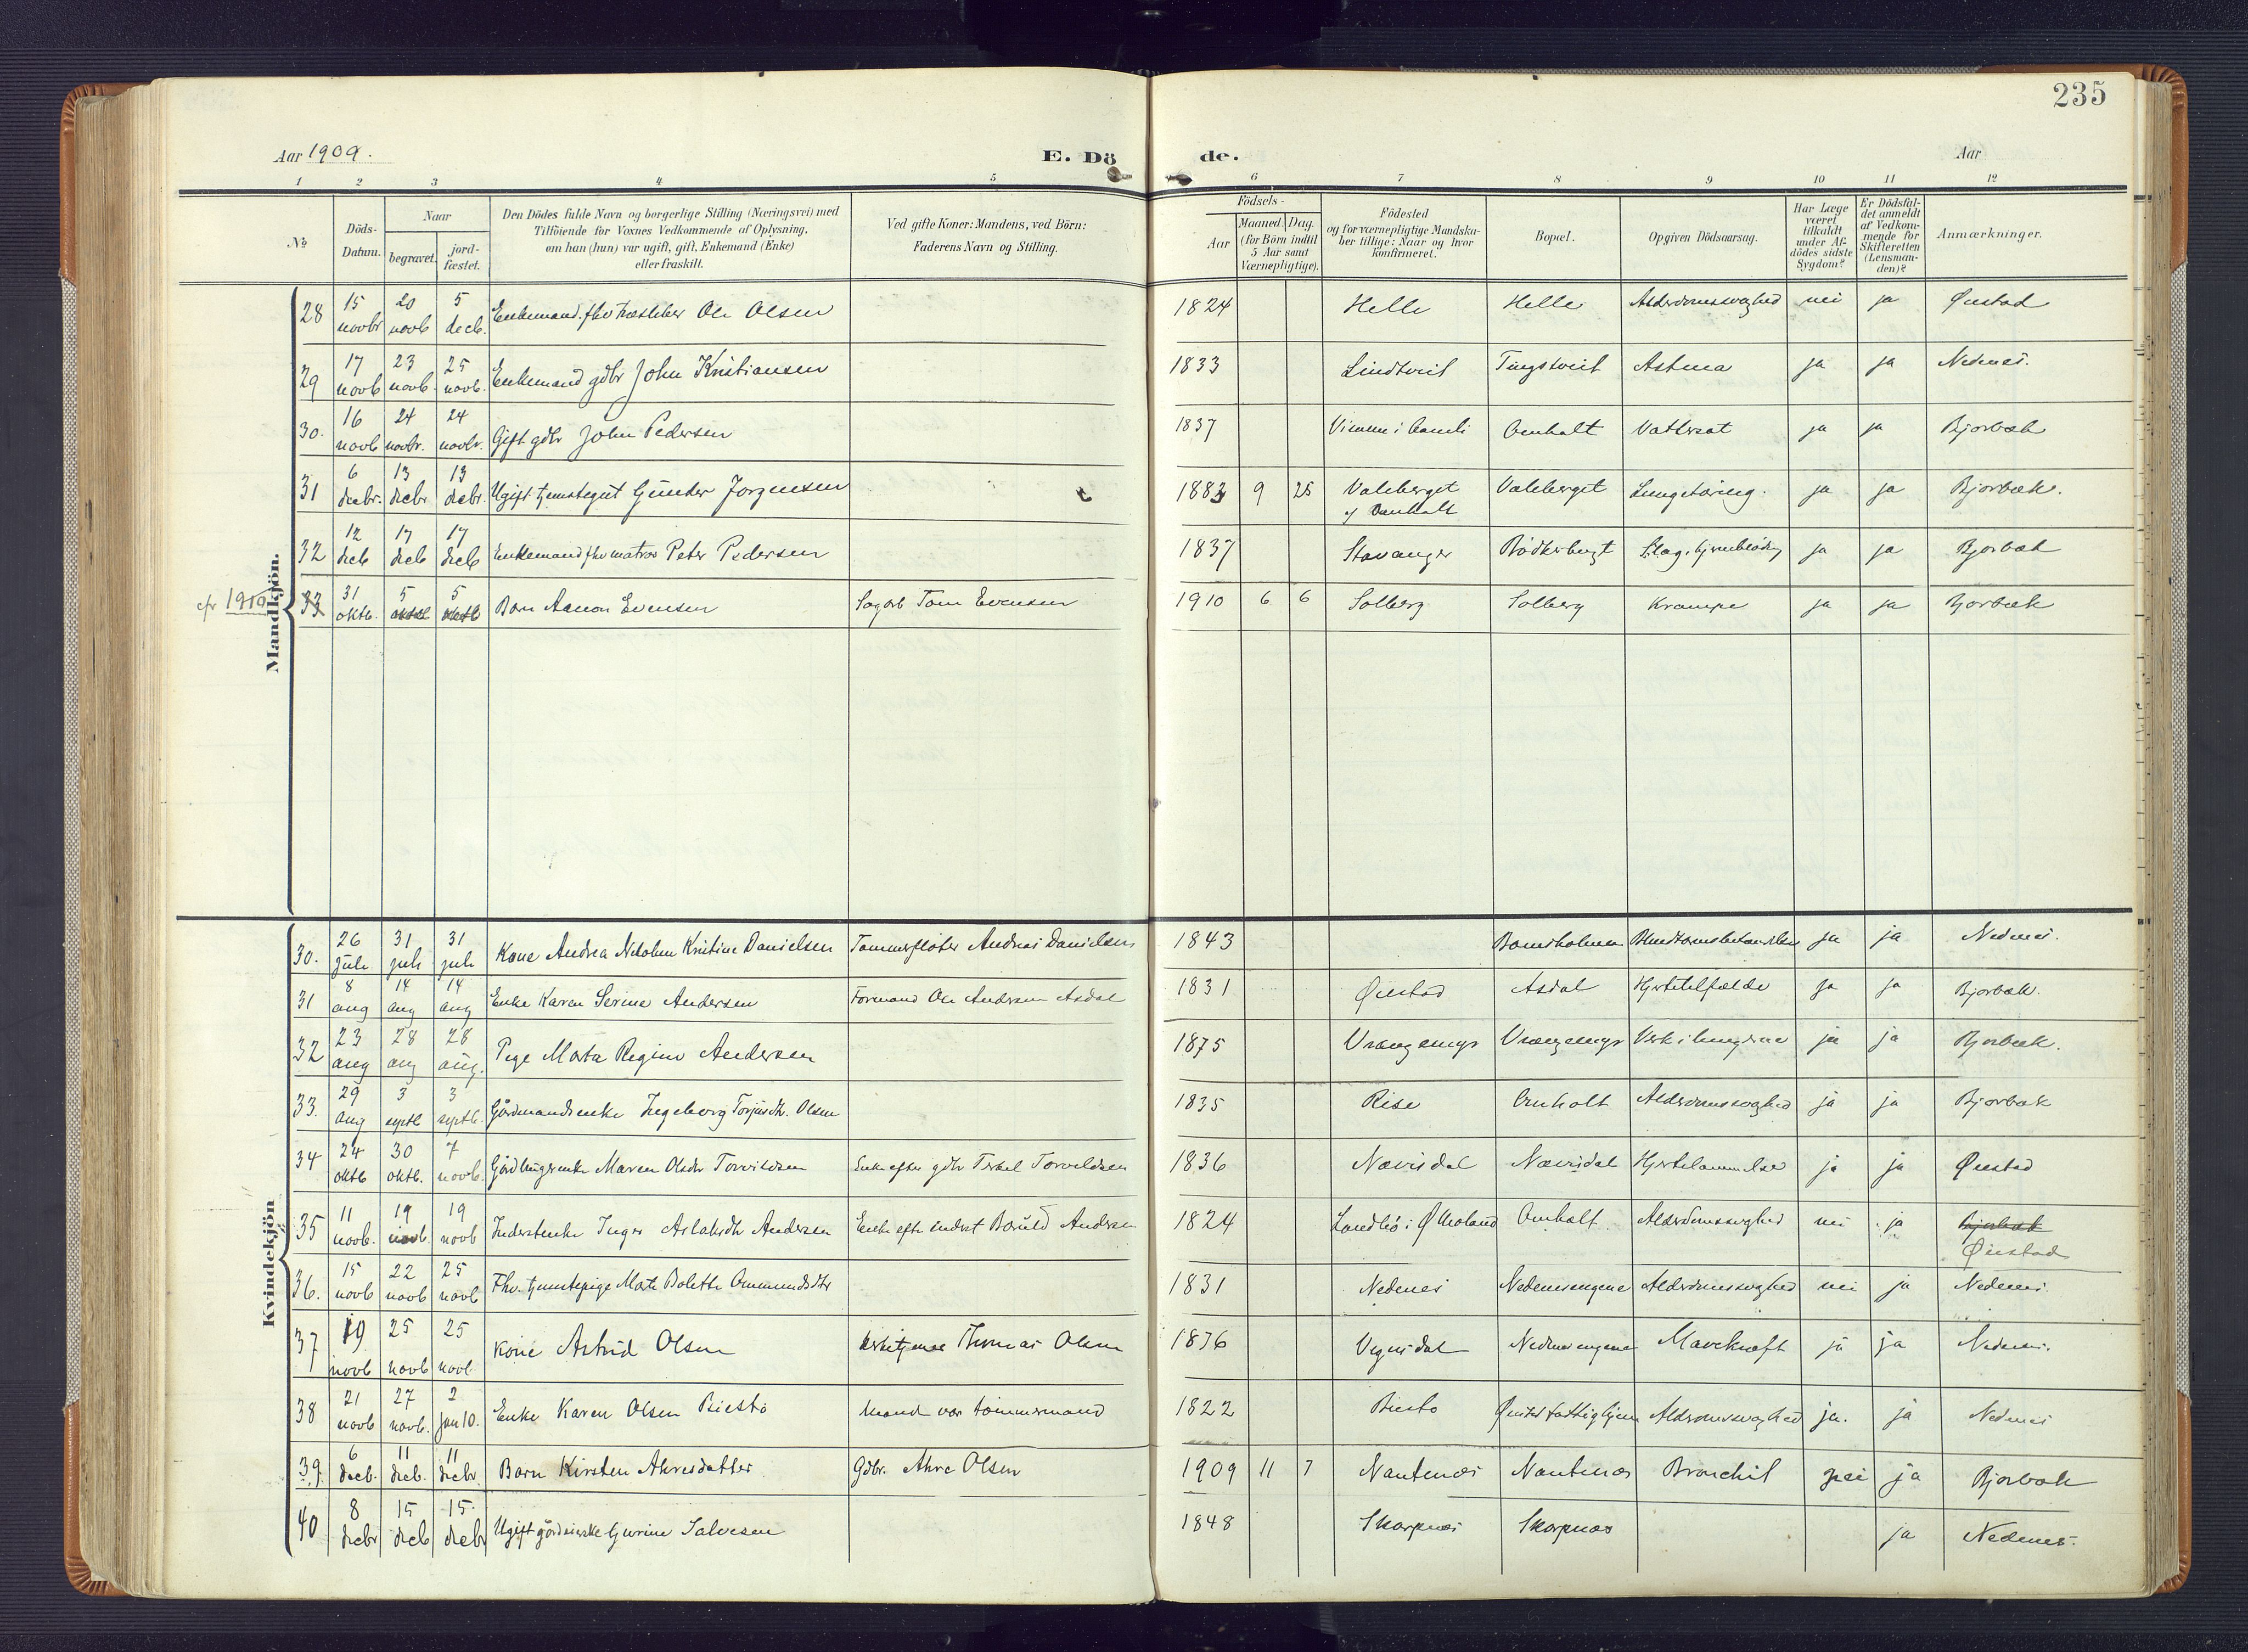 235
Aar 1909.
E. Dö de.
Aar
1 2 3 4 5 6 7 8 9 10 11 12
№
Döds-Datum.
Naar
begravet.
jord-fæstet.
Den Dödes fulde Navn og borgerlige Stilling (Næringsvei) med
Tilföiende for Voxnes Vedkommende af Oplysning,
om han (hun) var ugift, gift, Enkemand (Enke)
eller fraskilt.
Ved gifte Koner: Mandens, ved Börn:
Faderens Navn og Stilling.
Födsels-
Aar
Maaned. Dag.
(for Börn indtil
5 Aar samt
Værnepligtige).
Födested
og for værnepligtige Mandska-
ber tillige: Naar og hvor
konfirmeret.
Bopæl.
Opgiven Dödsaarsag.
Har Læge
været
tilkaldt
under Af-
dödes sidste
Sygdom?
Er Dödsfal-
det anmeldt
af Vedkom-
mende for
Skifteretten
(Lensman-
den)?
Anmærkninger.
Mandkjön.
28 15 novbr 20 novb 5 decb. Enkemand. fhv Ole Olsen 1824 Helle Helle Alderdomssvaghed nei ja Øiestad
29 17 novb 23 novb. 25 novb. Enkemand gdbr John Kristiansen 1833 Lindtveit Tingstveit Astma ja ja Nedenes.
30. 16 novb 24 novbr. 24 novbr. Gift gdbr John Pedersen 1837 Vimme i Aamli Omholt Vattersot ja ja Bjorbæk
31 6 decbr. 13 decbr 13 decbr. Ugift tjenstegut Gunder Jorgensen 1883 9 25 Valeberget Valeberget Lungetæring. ja ja Bjorbæk.
af Omholt
32 12 decb 17 decb 17 decb Enkemand fhv matros Peter Pedersen 1837 Stavanger Bödkerbugt Slag. hjerneblødng ja ja Bjorbæk
cfr 1910 33 31 oktb. 5 5 Barn Aanon Evensen Sagarb Tom Evensen 1910 6 6 Solberg Solberg Krampe ja ja Bjorbæk
Kvindekjön
30. 26 juli 31 juli 31 juli Kone Andrea Nikoline Kristine Danielsen Tømmerfløter Andreas Danielsen 1843 Bomsholmen Blindtarmsbetændelse ja ja Nedenes.
31 8 aug 14 aug 14 aug Enke Karen Serine Andersen Formand Ole Andersen Asdal 1831 Øiestad Asdal Hjertetilfælde ja ja Bjorbæk.
32 23 aug 28 aug 28 aug. Pige Marta Regine Andersen 1875 Vrængemyr Vrængemyr Verk i lungerne ja ja Bjorbæk.
33. 29 aug 3 septb 3 septb. Gårdmandsenke Ingeborg Torjusdtr. Olsen 1835 Rise Omholt Alderdomssvaghed ja ja Bjorbæk
34 24 oktb 30 oktb. 7 novb. Gårdbrugerenke Maren Olsdtr Torvildsen Enke efter gdbr Terkel Torvildsen 1836 Nævisdal Nævisdal Hjertelammelse ja ja Øiestad
35 11 novb. 19 novb. 19 novb Inderstenke Inger Aslaksdtr Andersen Enke efter inderst Bøuld Andersen 1824 Landbö i Ø Moland Omholt Alderdomssvaghed nei ja Bjorbæk
Øiestad
36. 15 novb 22 novb 25 novb Fhv. tjenstepige Mate Bolette Ommundsdtr 1831 Nedenes Nedenesengene Alderdomssvaghed nei ja Nedenes
37 19 novb 25 novb 25 novb. Kone Astrid Olsen Kirketjener Thomas Olsen 1836 Vegusdal Nedenesengene Mavekræft ja ja Nedenes.
38 21 novb 27 novb. 2 jan 10. Enke Karen Olsen Biestö Mand var tømmermand 1822 Biestö Øiestad fattighjem Alderdomssvaghed ja. ja Nedenes
39. 6 decb. 11 decb. 11 decbr Barn Kirsten Ahresdatter Gdbr. Ahre Olsen 1909 11 7 Nautenes Nautenes Bronchit nei ja Bjorbæk
40 8 decbr 15 decb 15 decbr Ugift gårdeierske Gurine Salvesen 1848 Skarpnes Skarpnæs ja Nedenes.